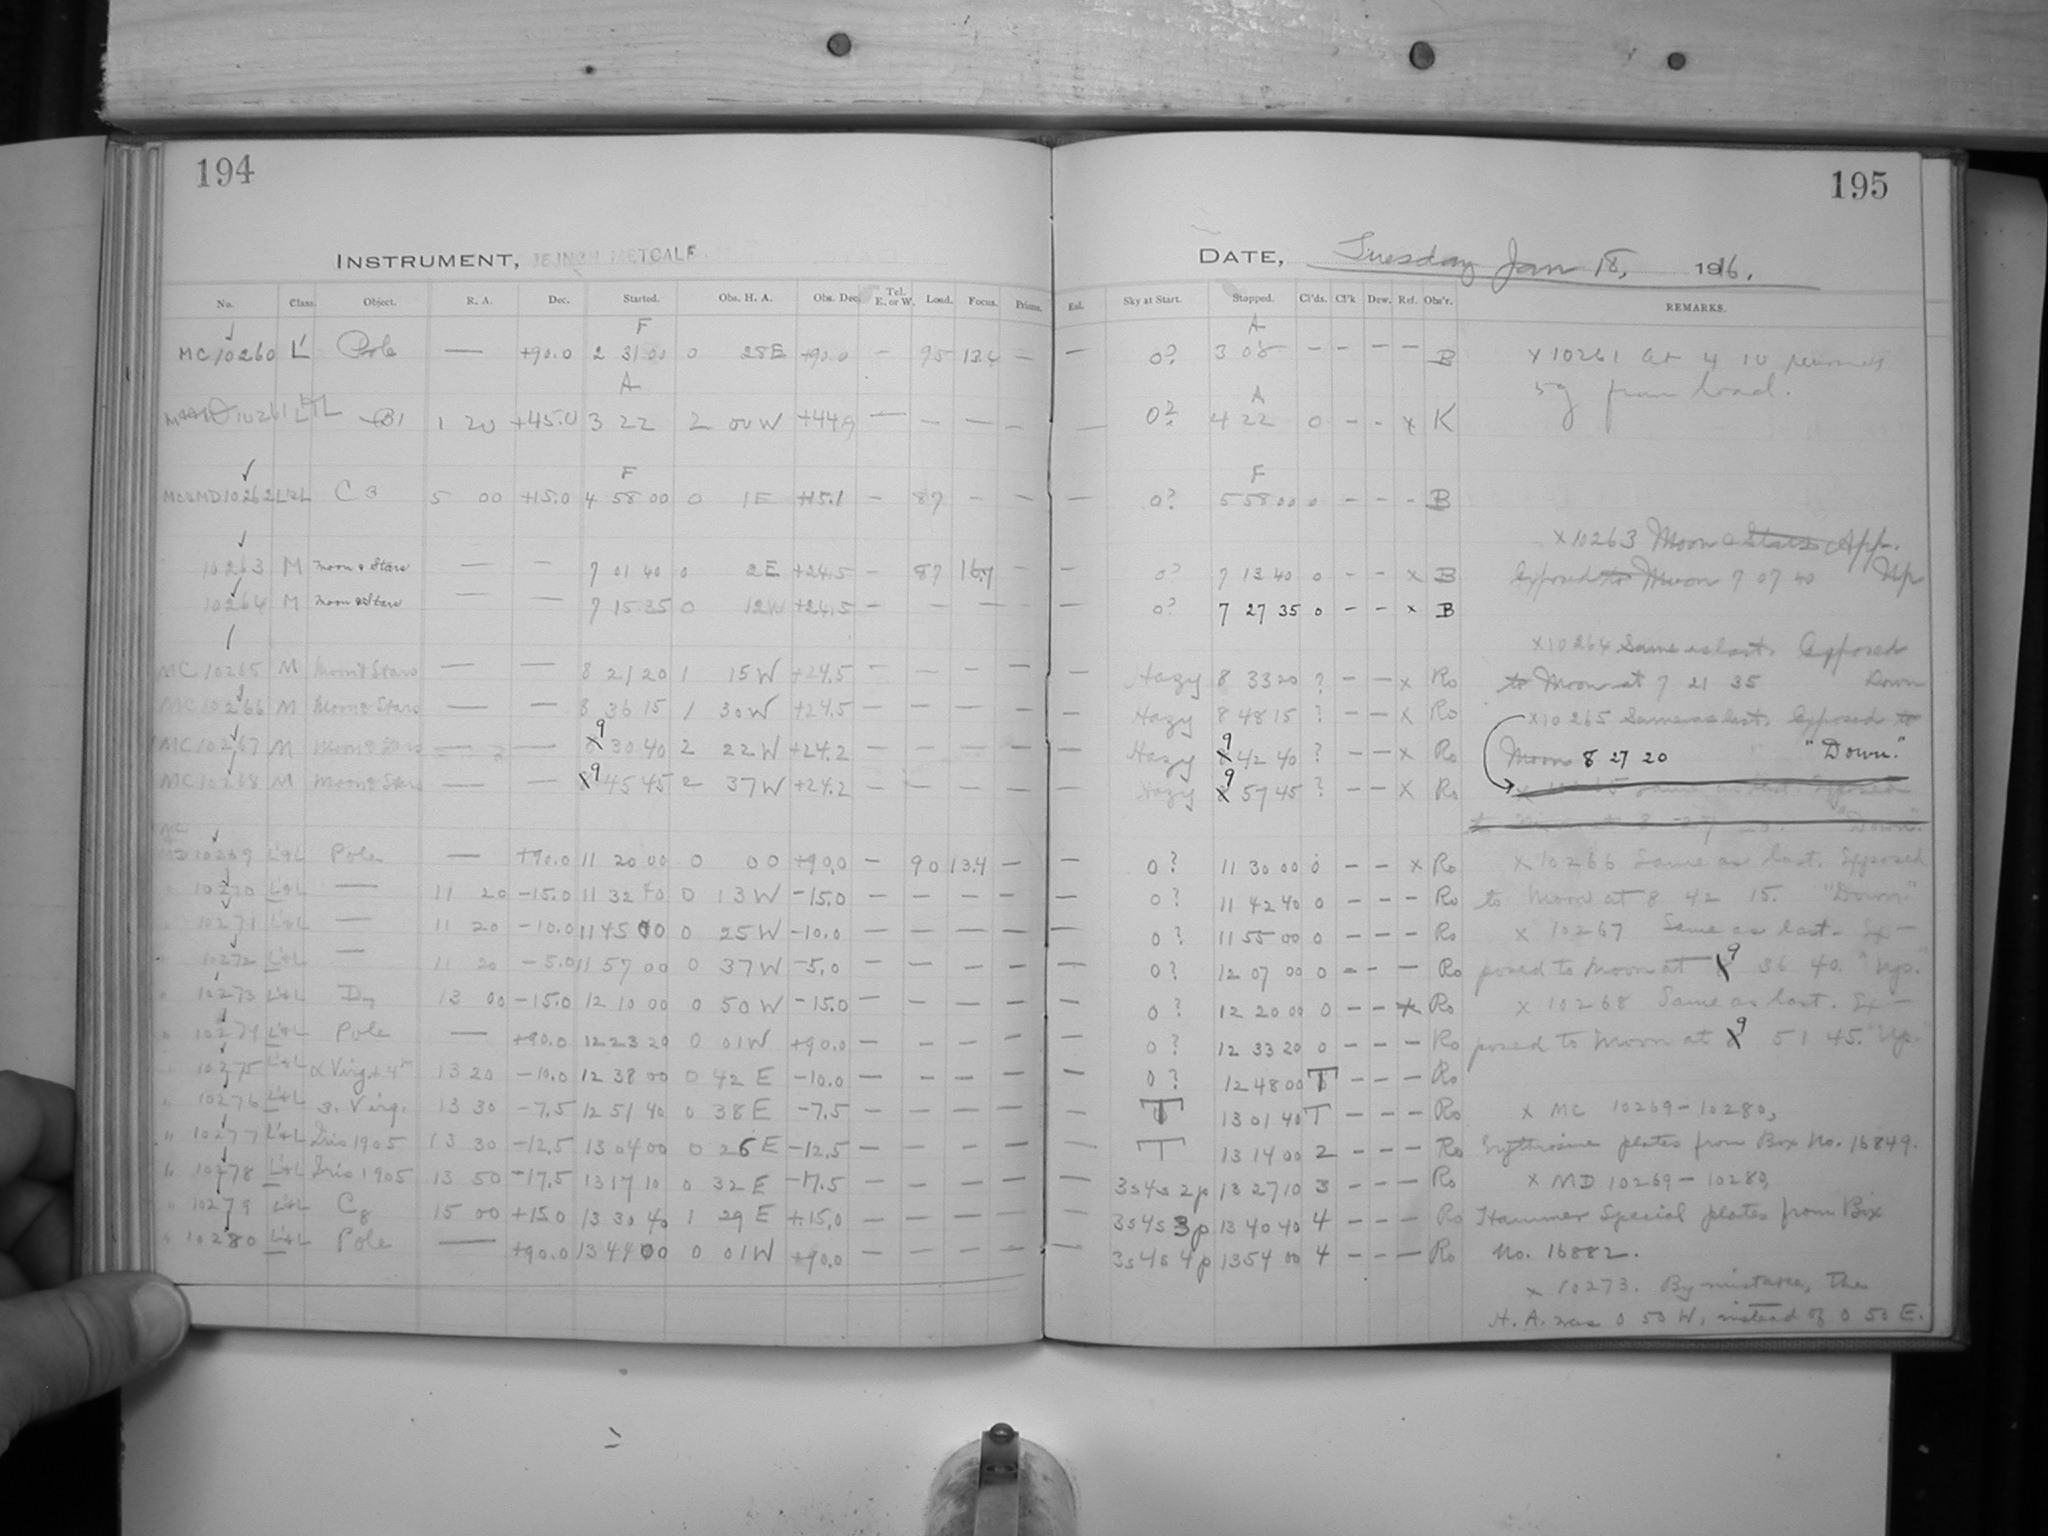 194
195
INSTRUMENT, METCALF.
DATE, Tuesday Jan 18, 1916.
No. Class. Object. R. A. Dec. Started. Obs. H. A. Obs. Dec. Tel. E. or W. Load. Focus. Prisms. Exl. Sky at Start. Stopped. Cl'ds. Cl'k Dew. Ref. Obs'r. REMARKS.
F A
MC 10260 L' Pole — +90.0 2 31 00 0 28 E +90.0 — 95 13.4 — — 0? 3 08 — — — — B
A A
10261 B1 1 20 +45.0 3 22 2 00 W +44.9 — — — — — 0? 4 22 0 — — x K
F F
MC&MD 10262 L'&L C3 5 00 +15.0 4 58 00 0 1 E +15.1 — 87 — — — 0? 5 58 00 0 — — — B
10263 M Moon & Stars — — 7 01 40 0 2 E +24.5 — 87 16.7 — — 0? 7 13 40 0 — — x B
10264 M Moon & Stars — — 7 15 35 0 12 W +24.5 — — — — — 0? 7 27 35 0 — — x B
MC 10265 M Moon & Stars — — 8 21 20 1 15 W +24.5 — — — — — Hazy 8 33 20 ? — — x Ro
MC 10266 M Moon & Stars — — 8 36 15 1 30 W +24.5 — — — — — Hazy 8 48 15 ? — — x Ro
MC 10267 M Moon & Stars — — 9 30 40 2 22 W +24.2 — — — — — Hazy 9 42 40 ? — — x Ro
MC 10268 M Moon & Stars — — 9 45 45 2 37 W +24.2 — — — — — Hazy 9 57 45 ? — — x Ro
MC
MD 10269 L'&L Pole — +90.0 11 20 00 0 00 +90.0 — 90 13.4 — — 0? 11 30 00 0 — — x Ro
" 10270 L'&L — 11 20 -15.0 11 32 40 0 13 W -15.0 — — — — — 0? 11 42 40 0 — — — Ro
" 10271 L'&L — 11 20 -10.0 11 45 00 0 25 W -10.0 — — — — — 0? 11 55 00 0 — — — Ro
" 10272 L'&L — 11 20 -5.0 11 57 00 0 37 W -5.0 — — — — — 0? 12 07 00 0 — — — Ro
" 10273 L'&L D7 13 00 -15.0 12 10 00 0 50 W -15.0 — — — — — 0? 12 20 00 0 — — x Ro
" 10274 L'&L Pole — +90.0 12 23 20 0 01 W +90.0 — — — — — 0? 12 33 20 0 — — — Ro
" 10275 L'&L α Virg. + 4m 13 20 -10.0 12 38 00 0 42 E -10.0 — — — — — 0? 12 48 00 T — — — Ro
" 10276 L'&L 3. Virg. 13 30 -7.5 12 51 40 0 38 E -7.5 — — — — — T 13 01 40 T — — — Ro
" 10277 L'&L Iris 1905 13 30 -12.5 13 04 00 0 26 E -12.5 — — — — — T 13 14 00 2 — — — Ro
" 10278 L'&L Iris 1905 13 50 -17.5 13 17 10 0 32 E -17.5 — — — — — 3s4s 2p 13 27 10 3 — — — Ro
" 10279 L'&L C8 15 00 +15.0 13 30 40 1 29 E +15.0 — — — — — 3s4s 3p 13 40 40 4 — — — Ro
" 10280 L'&L Pole — +90.0 13 44 00 0 01 W +90.0 — — — — — 3s4s 4p 13 54 00 4 — — — Ro
x 10261 at 4 10 removed
5g from load.
x 10263 Moon & Stars App.
Exposed to Moon 7 07 40 Up
x 10264 Same as last. Exposed
to Moon at 7 21 35 Down
x 10265 Same as last. Exposed to
Moon 8 27 20 "Down."
x 10265 Same as last. Exposed
to Moon at 8 27 20. "Down."
x 10266 Same as last. Exposed
to Moon at 8 42 15. "Down."
x 10267 Same as last. Ex-
posed to Moon at 9 36 40. "Up."
x 10268 Same as last. Ex-
posed to Moon at 9 51 45. "Up."
x MC 10269-10280,
Erythrosine plates from Box No. 16849.
x MD 10269-10280,
Hammer Special plates from Box
No. 16882.
x 10273. By mistake, the
H. A. was 0 50 W, instead of 0 50 E.